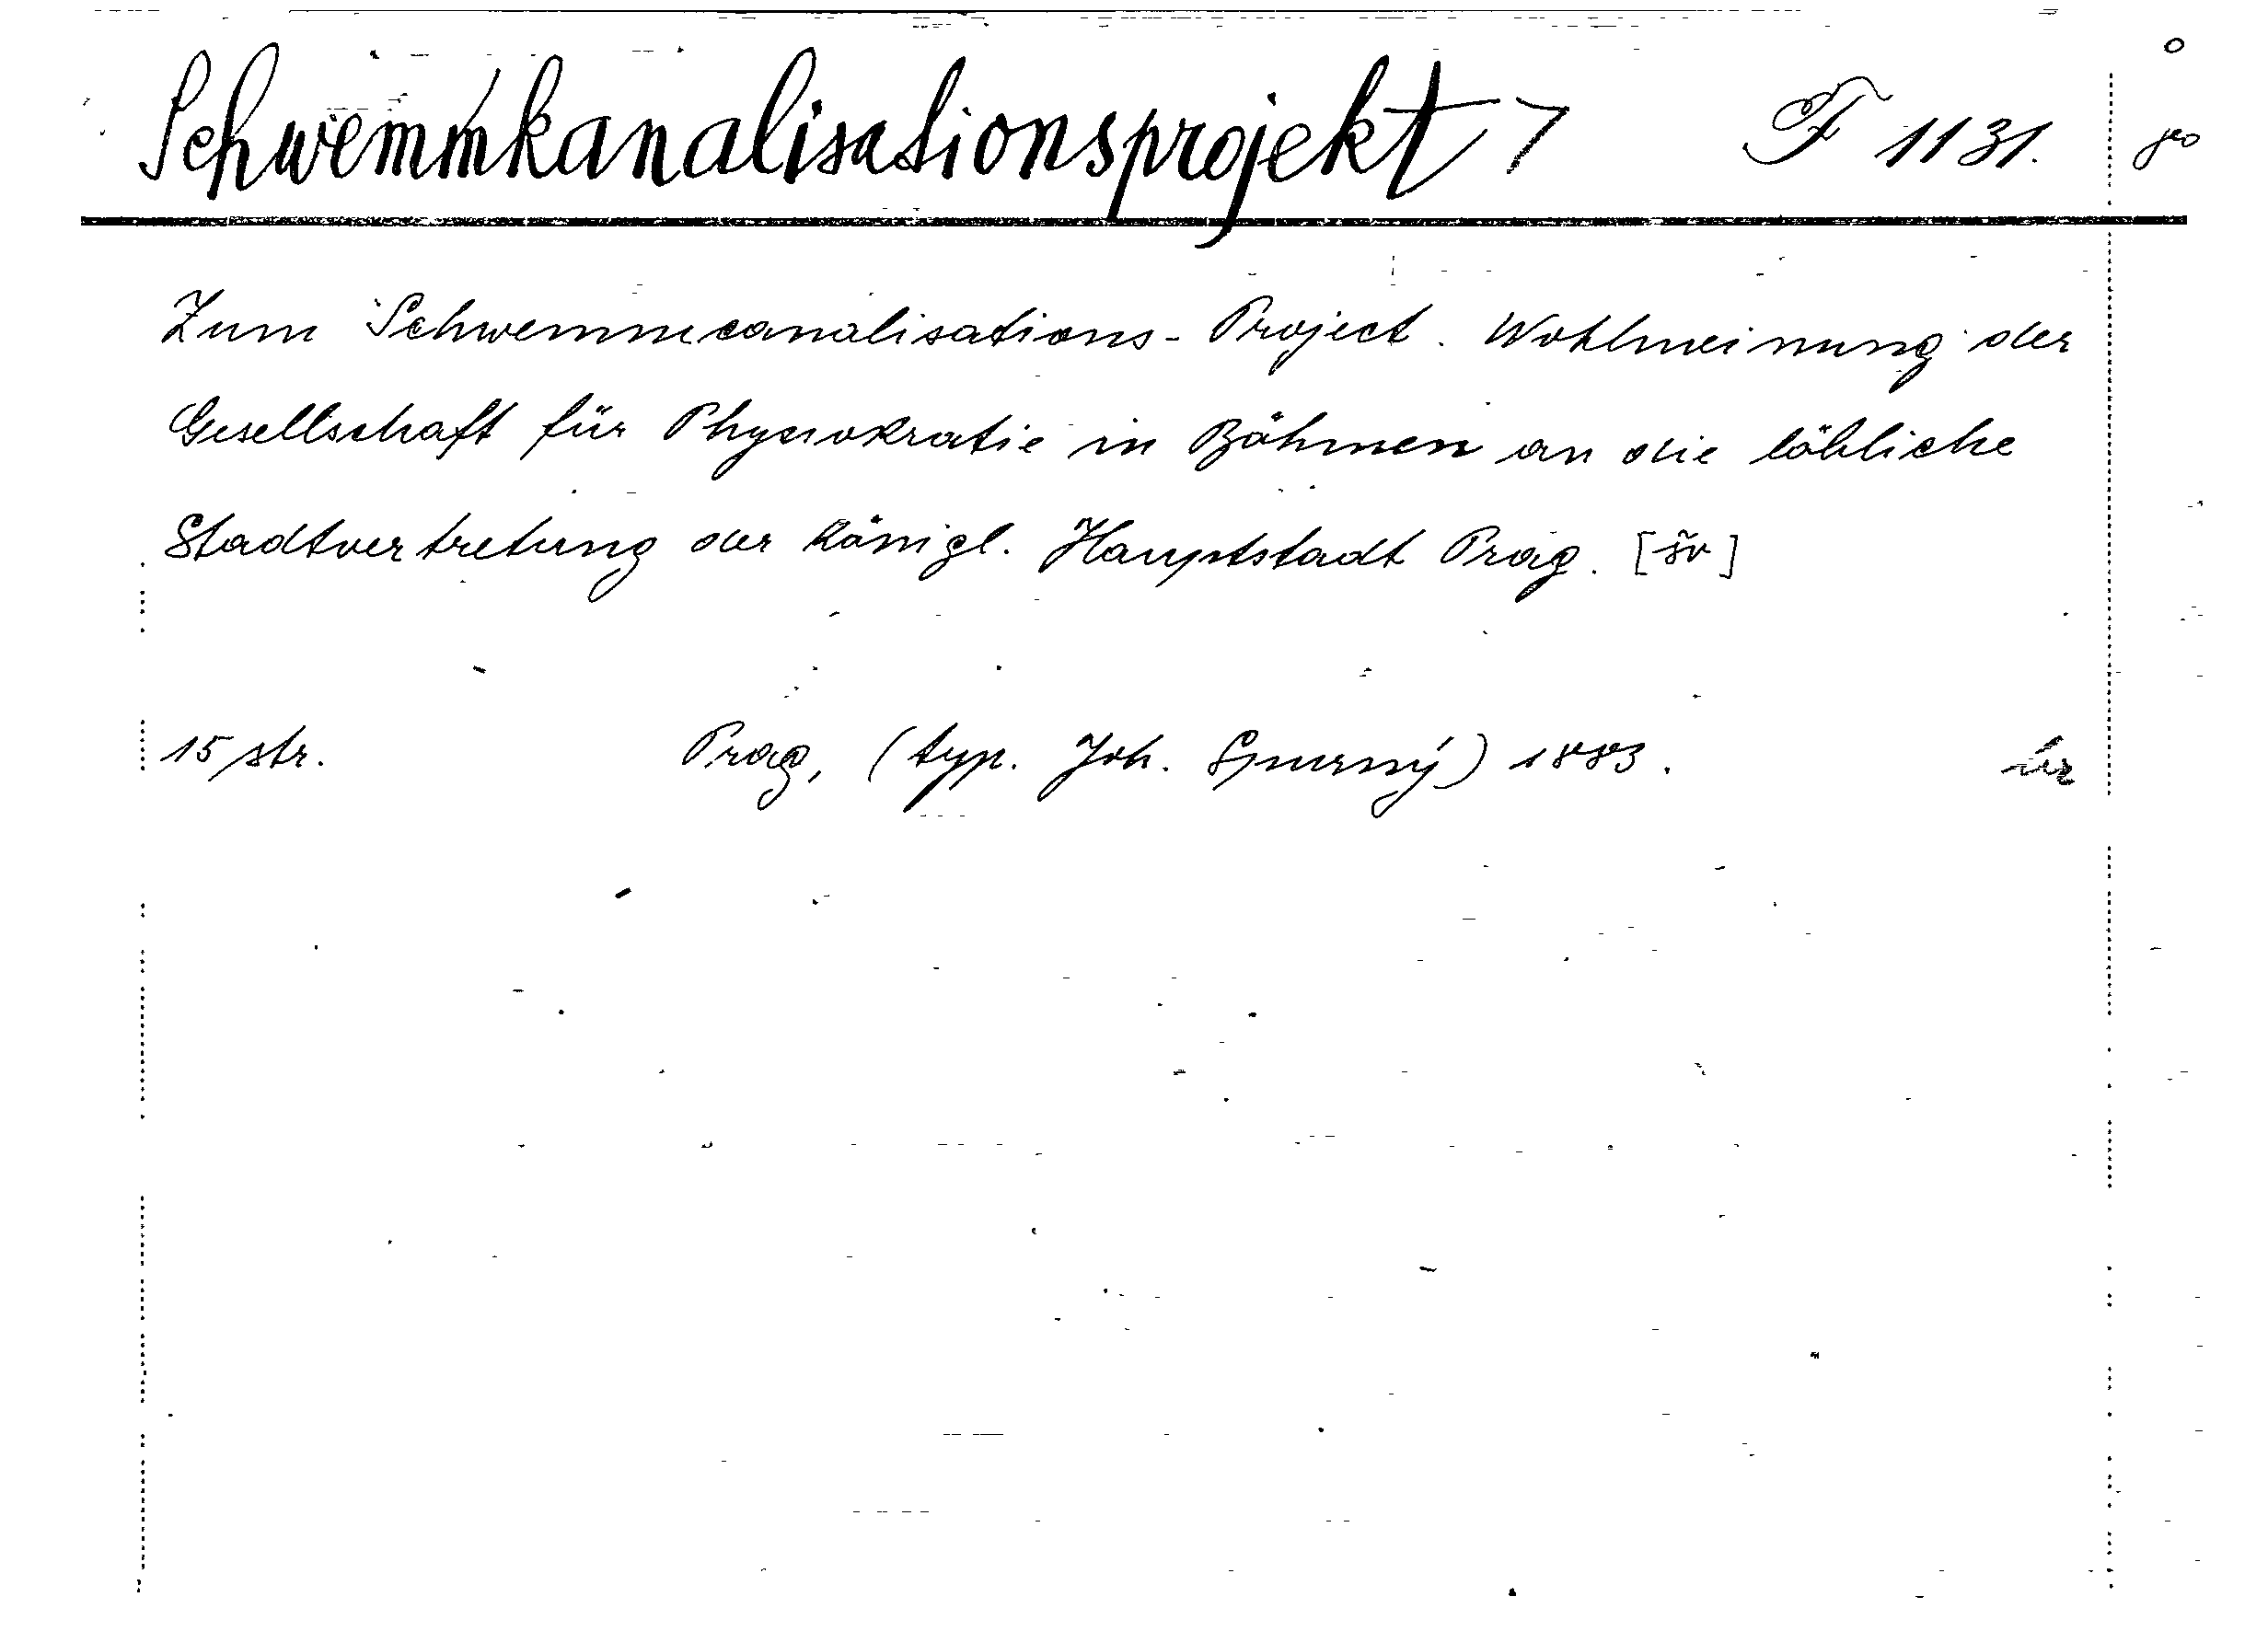 Schwemmkanalisationsprojekt F 1131.
Zum Schwemmcanalisations-Project. Wohlmeinung der
Gesellschaft für Physiokratie in Böhmen an die löbliche
Stadtvertretung der Königl. Hauptstadt Prag. [šv]
15 str. Prag, (typ. Joh. Spurný) 1883.